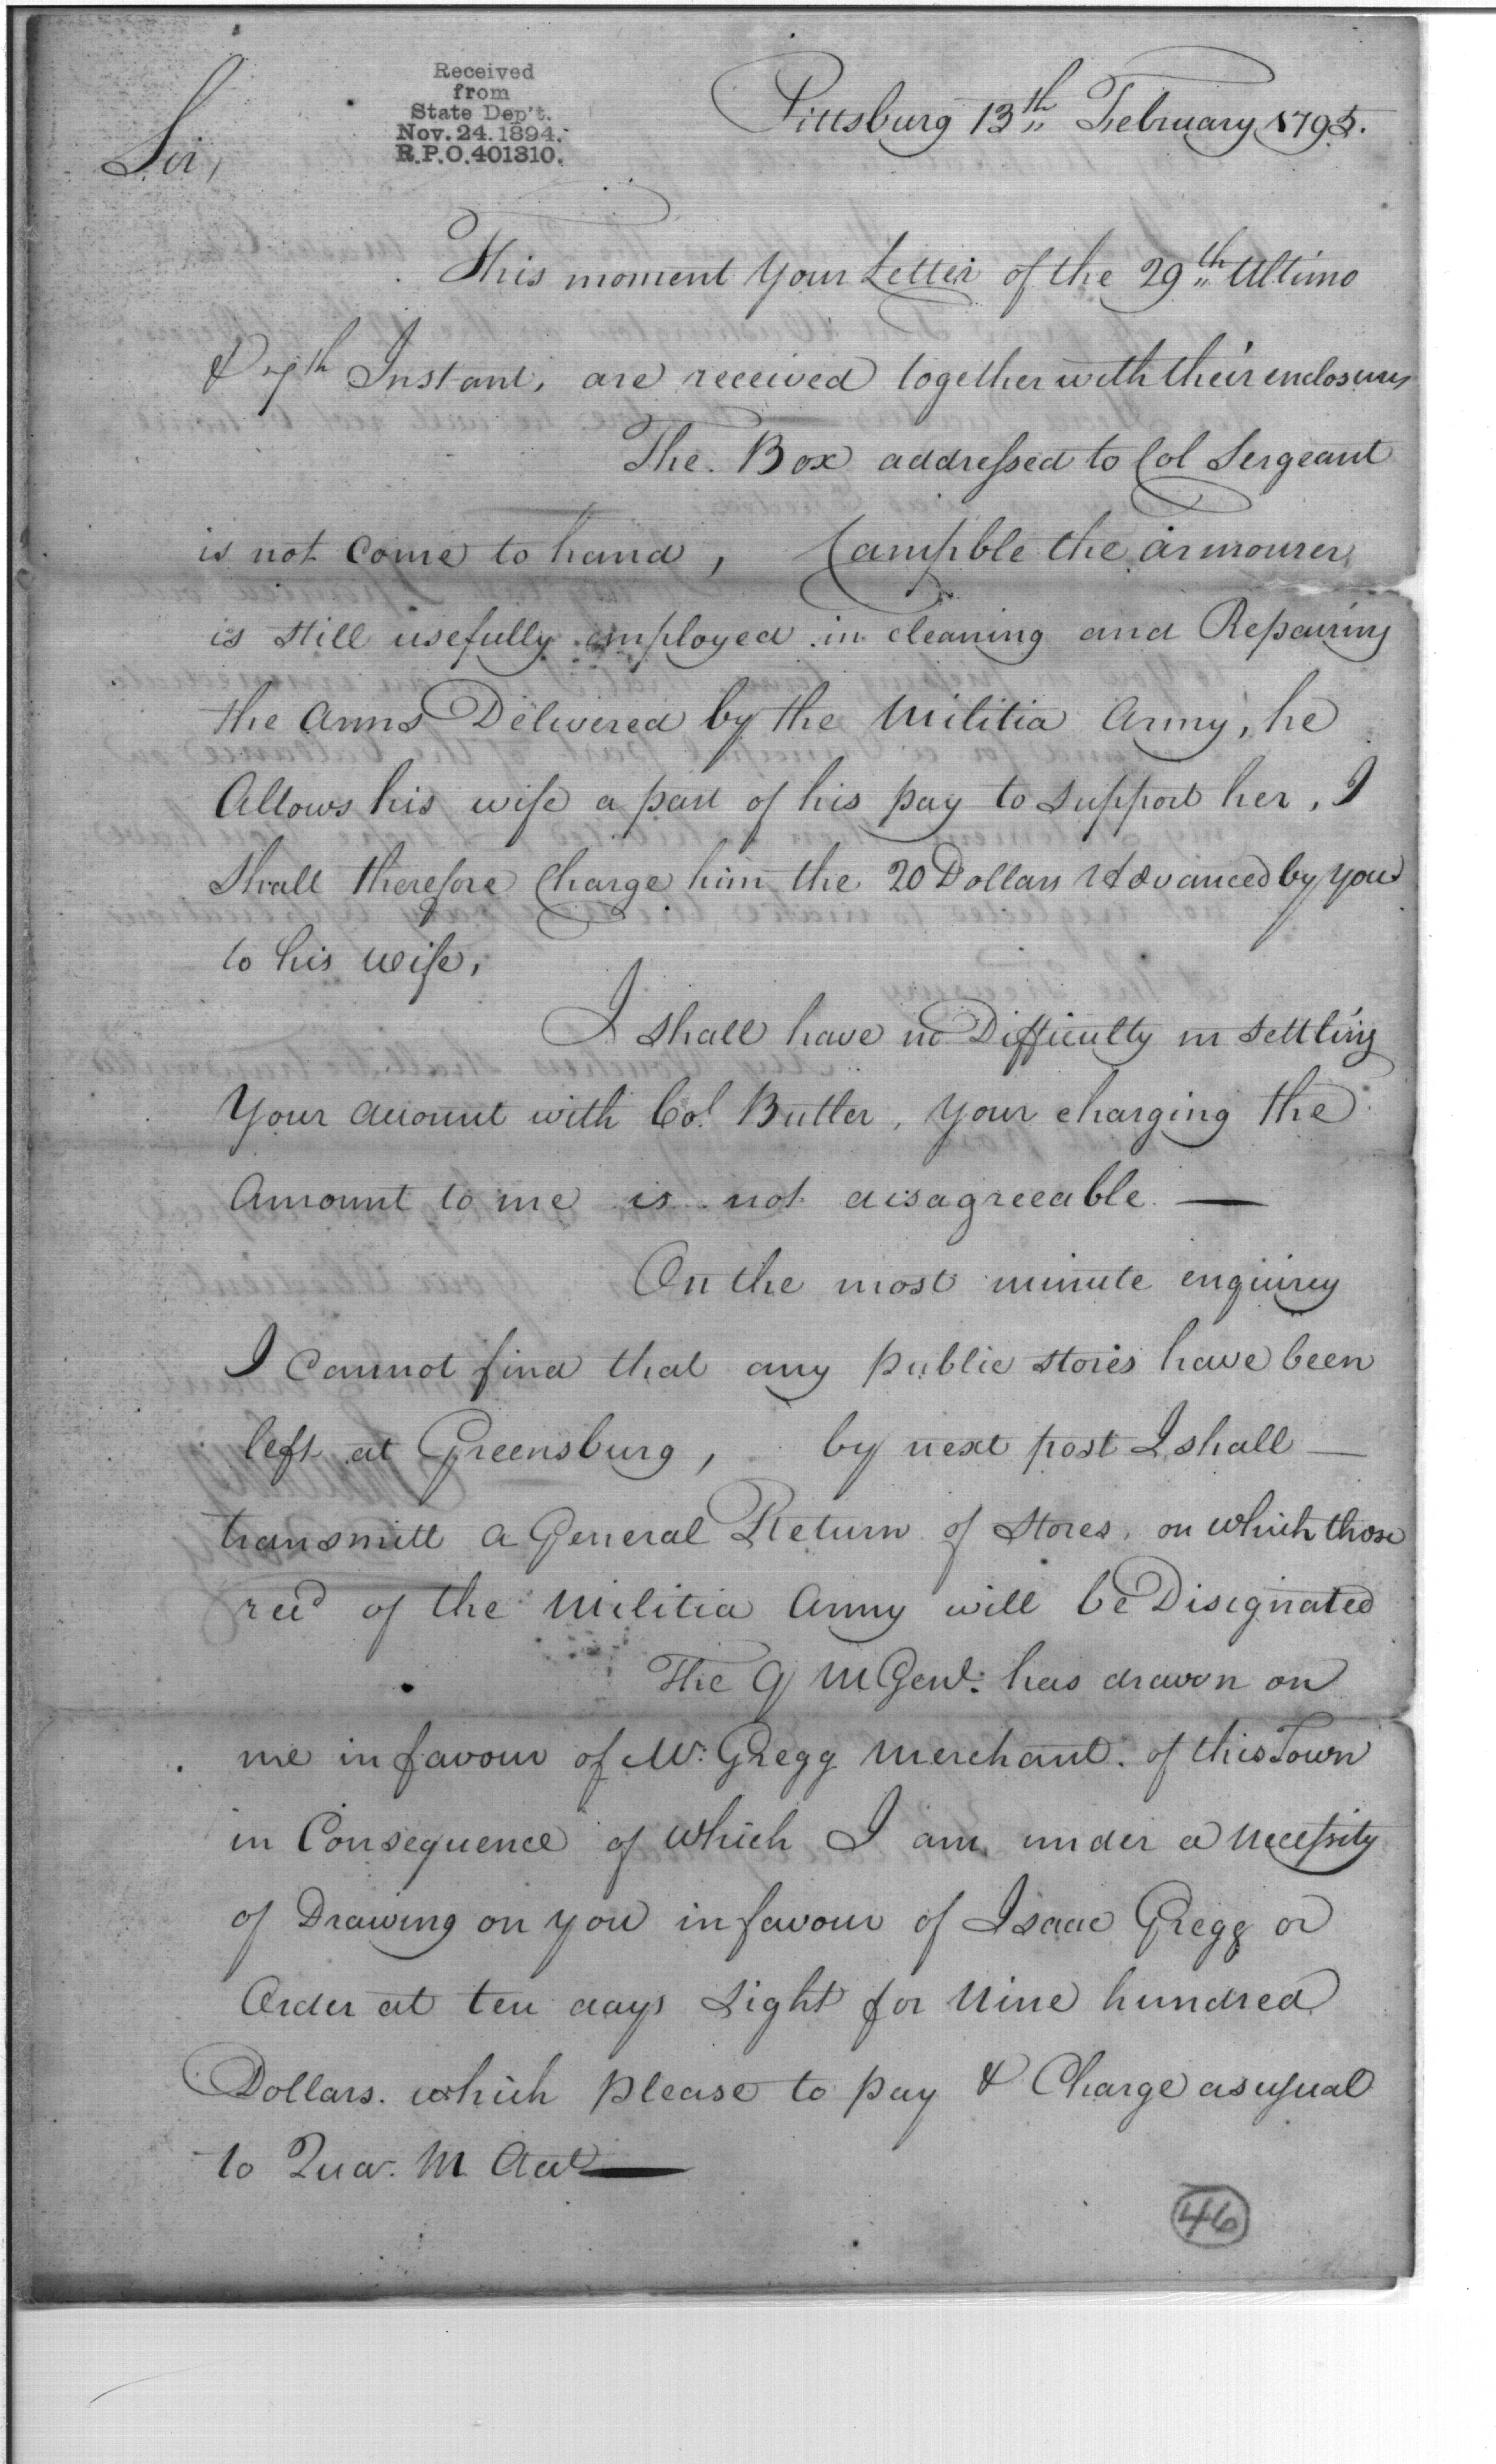 Received
from
State Dep't.
Nov. 24. 1894.
R.P.O. 401310.
Pittsburg 13th February 1795.
Sir,
This moment Your Letter of the 29th Ultimo
& 7th Instant, are received together with their enclosures
The Box addressed to Col Sergeant
is not Come to hand, Campble the armourer
is still usefully employed in cleaning and Repairing
the Arms Delivered by the Militia Army, he
Allows his wife a part of his pay to Support her, I
Shall therefore Charge him the 20 Dollars Advanced by you
to his wife,
I shall have no Difficulty in Settling
Your account with Col. Butler, Your charging the
Amount to me is not disagreeable —
On the most minute enquirey
I Cannot find that any public stores have been
left at Greensburg, by next post I shall —
transmitt a General Return of Stores, on which those
recd of the Militia Army will be Disignated
The Q M Genl. has drawn on
me in favour of Mr. Gregg Merchant. of this Town
in Consequence of which I am under a Necessity
of Drawing on you in favour of Isaac Gregg or
Order at ten days Sight for Nine hundred
Dollars. which please to pay & Charge as usual
to Quar. M. Act —
46